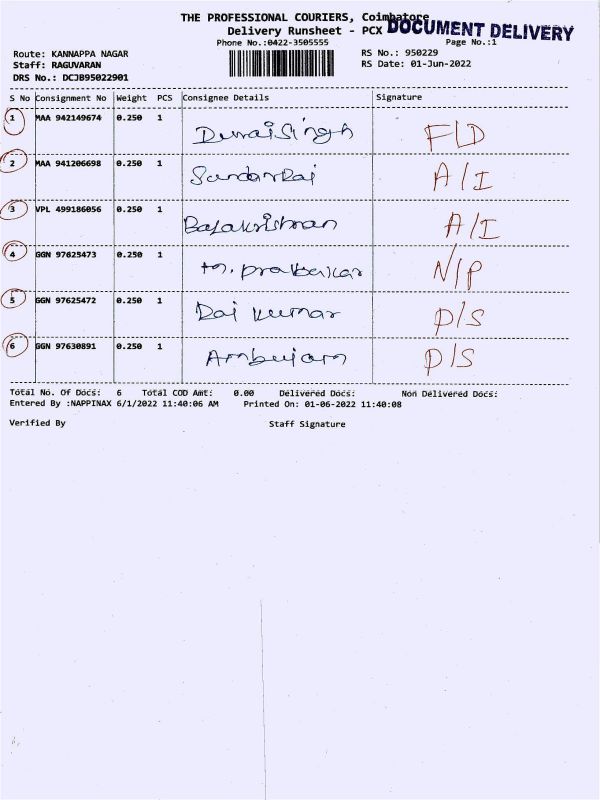 THE PROFESSIONAL COURIERS, Coimbatore
Delivery Runsheet - PCX DOCUMENT DELIVERY
Phone No.:0422-3505555 Page No.:1
Route: KANNAPPA NAGAR RS No.: 950229
Staff: RAGUVARAN RS Date: 01-Jun-2022
DRS No.: DCJB95022901
S No Consignment No Weight PCS Consignee Details Signature
1 MAA 942149674 0.250 1 Duraisingh F/D
2 MAA 941206698 0.250 1 SundarRaj A/I
3 VPL 499186056 0.250 1 Balakrishnan A/I
4 GGN 97625473 0.250 1 m. prabakar N/P
5 GGN 97625472 0.250 1 Raj kumar D/S
6 GGN 97630891 0.250 1 Ambujam D/S
Total No. Of Docs: 6 Total COD Amt: 0.00 Delivered Docs: Non Delivered Docs:
Entered By :NAPPINAX 6/1/2022 11:40:06 AM Printed On: 01-06-2022 11:40:08
Verified By Staff Signature